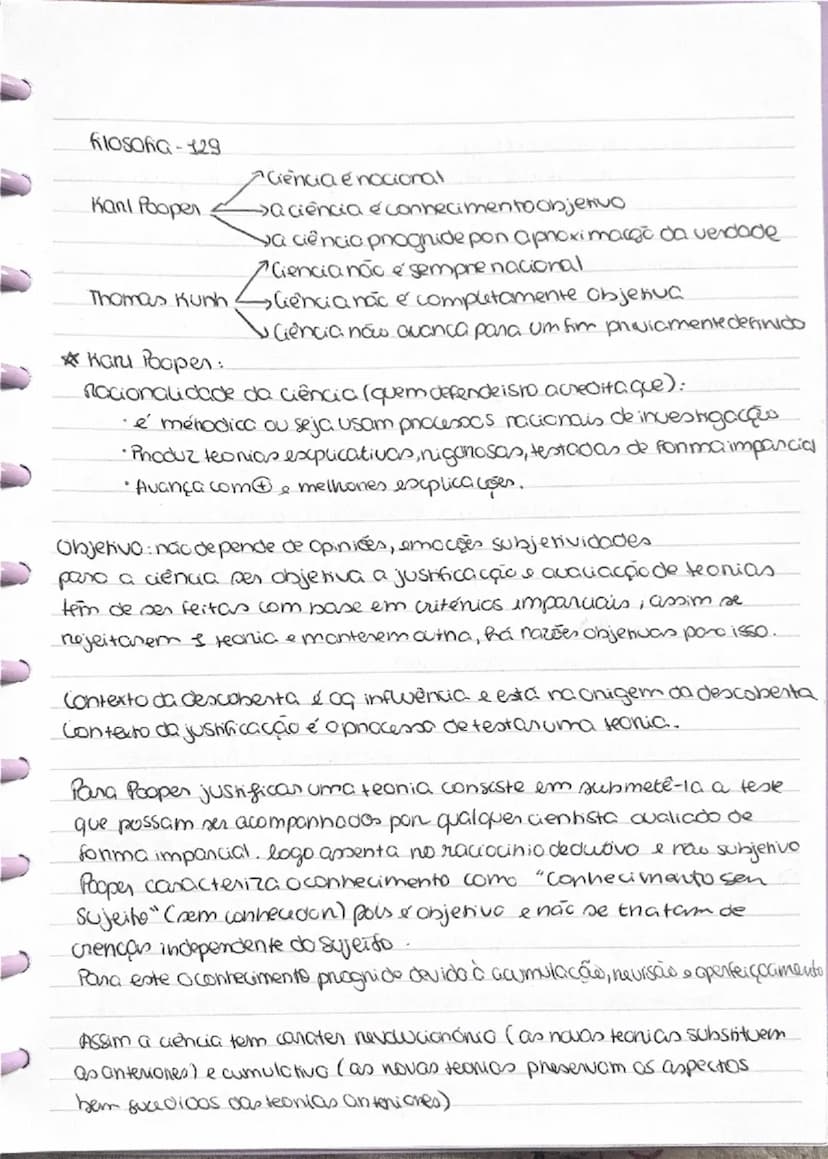 filosofia - 129
Ciência é racional
Karl Pooper
a ciência é conhecimento objetivo
a ciência progride por aproximação da verdade
Ciencia não é sempre racional
Thomas Kunh
Ciência não é completamente objetiva
Ciência não avanca para um fim previamente definido
* Karl Pooper:
Racionalidade da ciência (quem defende isto acredita que):
· é métodica ou seja usam processos racionais de investigacção
· Produz teorias explicativas, rigorosas, testadas de forma imparcial
· Avança com ⊕ e melhores explicações.
Objetivo: não depende de opiniões, emoções subjetividades
para a ciência ser objetiva a justificacção e avaliacção de teorias
têm de ser feitas com base em critérios imparciais, assim se
rejeitarem 1 teoria e manterem outra, há razões objetivas para isso.
Contexto da descoberta é oq influência e está na origem da descoberta
Contexto da justificação é o processo de testar uma teoria.
Para Pooper justificar uma teoria consiste em submetê-la a teste
que possam ser acompanhados por qualquer cientista avaliado de
forma imparcial. logo assenta no raciocinio dedutivo e não subjetivo
Pooper caracteriza o conhecimento como "Conhecimento sem
Sujeito" (sem conhecedor) pois é objetivo e não se tratam de
crenças independente do sujeito.
Para este o conhecimento progride devido à acumulação, revisão e aperfeiçoamento
Assim a ciência tem carater revolucionário (as novas teorias substituem
as anteriores) e cumulativo (as novas teorias preservam os aspectos
bem sucedidos das teorias anteriores)